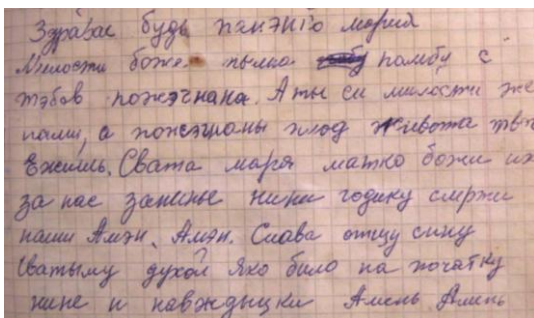 Здравас будь панэнго мария
Милости боже пылна памбу с
тэбов пожэчнана. А ты си милости же
нами, а пожэгнаны плод живота тв
Ежишь. Свата маря матко божи
за нас занинье нини годину смржи
нами Амэн. Амэн. Слава отцу сину
Сватыму духой Яко било на початку
нине и навждыцки Амень Амень